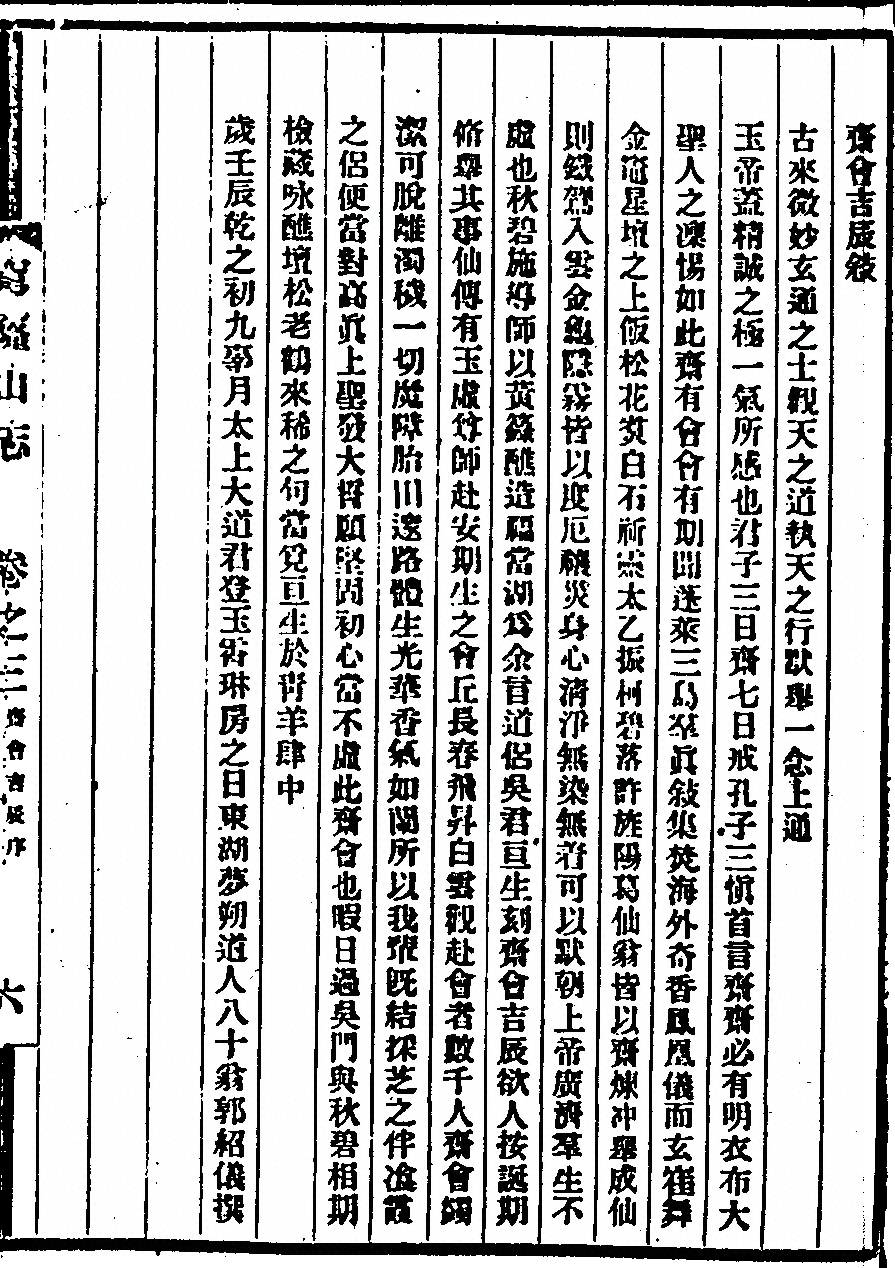 齋會吉辰敍
古來微妙玄通之士觀天之道執天之行默舉一念上通
玉帝葢精誠之極一氣所感也君子三日齋七日戒孔子三愼首言齋齋必有明衣布大
聖人之凜惕如此齋有會會有期聞蓬萊三島羣眞敍集焚海外奇香鳳凰儀而玄崔舞
金菴星壇之上飯松花煑白石祈崇太乙振柯碧落許旌陽葛仙翁皆以齋煉冲舉成仙
則鐵鴛入雲金隱霧皆以度厄禳災身心淸淨無染無着可以默朝上帝廣濟羣生不
虛也秋碧施導師以黃籙醮造福當湖爲余言道侶吳君亘生刻齋會吉辰欲人按誕期
脩舉其事仙傳有玉虛尊師赴安期生之會丘長春飛昇白雲觀赴會者數千人齋會蠲
潔可脫離濁穢一切魔障胎田遠路體生光華香氣如蘭所以我輩旣結採芝之伴飡霞
之侶便當對高眞上聖發大誓願堅固初心當不虛此齋會也暇日過吳門與秋碧相期
檢藏咏醮壇松老鶴來稀之句當覓亘生於靑羊肆中
歲壬辰乾之初九辜月太上大道君登玉霄琳房之日東湖夢朔道人八十翁郭紹儀撰
山志
卷之三
齋會吉辰序
六